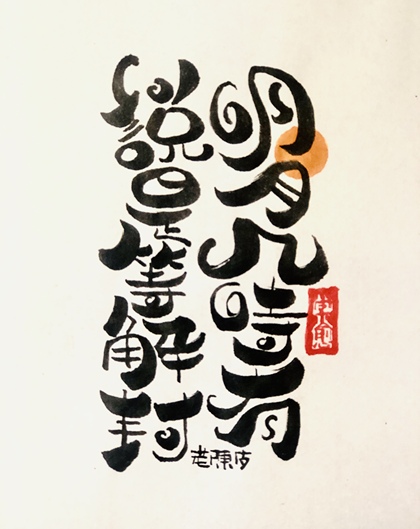 明月几時有
説是等解封
老陳